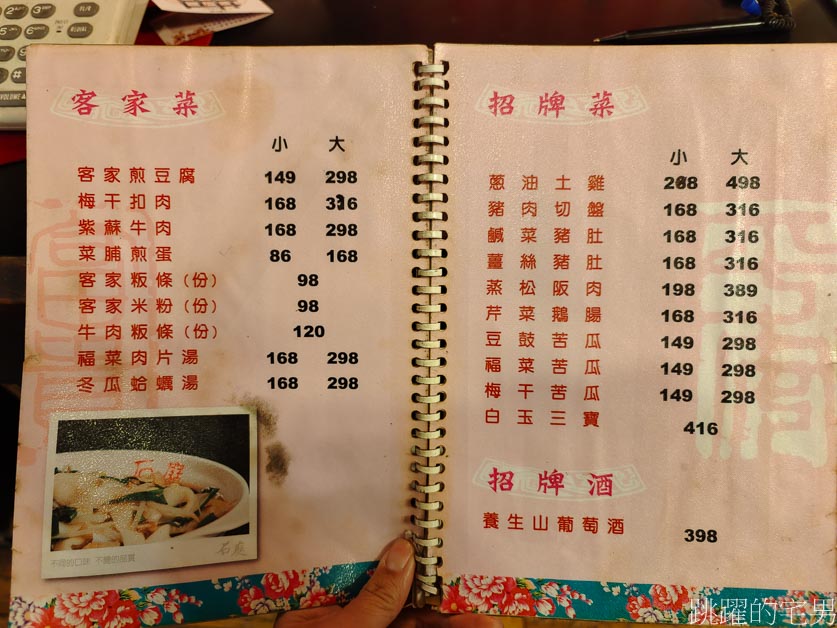 客家菜
小 大
客家煎豆腐 149 298
梅干扣肉 168 316
紫蘇牛肉 168 298
菜脯煎蛋 86 168
客家粄條(份) 98
客家米粉(份) 98
牛肉粄條(份) 120
福菜肉片湯 168 298
冬瓜蛤蠣湯 168 298
石庭
石庭
招牌菜
小 大
蔥油土雞 268 498
豬肉切盤 168 316
鹹菜豬肚 168 316
薑絲豬肚 168 316
蒸松阪肉 198 389
芹菜鵝腸 168 316
豆鼓苦瓜 149 298
福菜苦瓜 149 298
梅干苦瓜 149 298
白玉三寶 416
招牌酒
養生山葡萄酒 398
跳躍的宅男